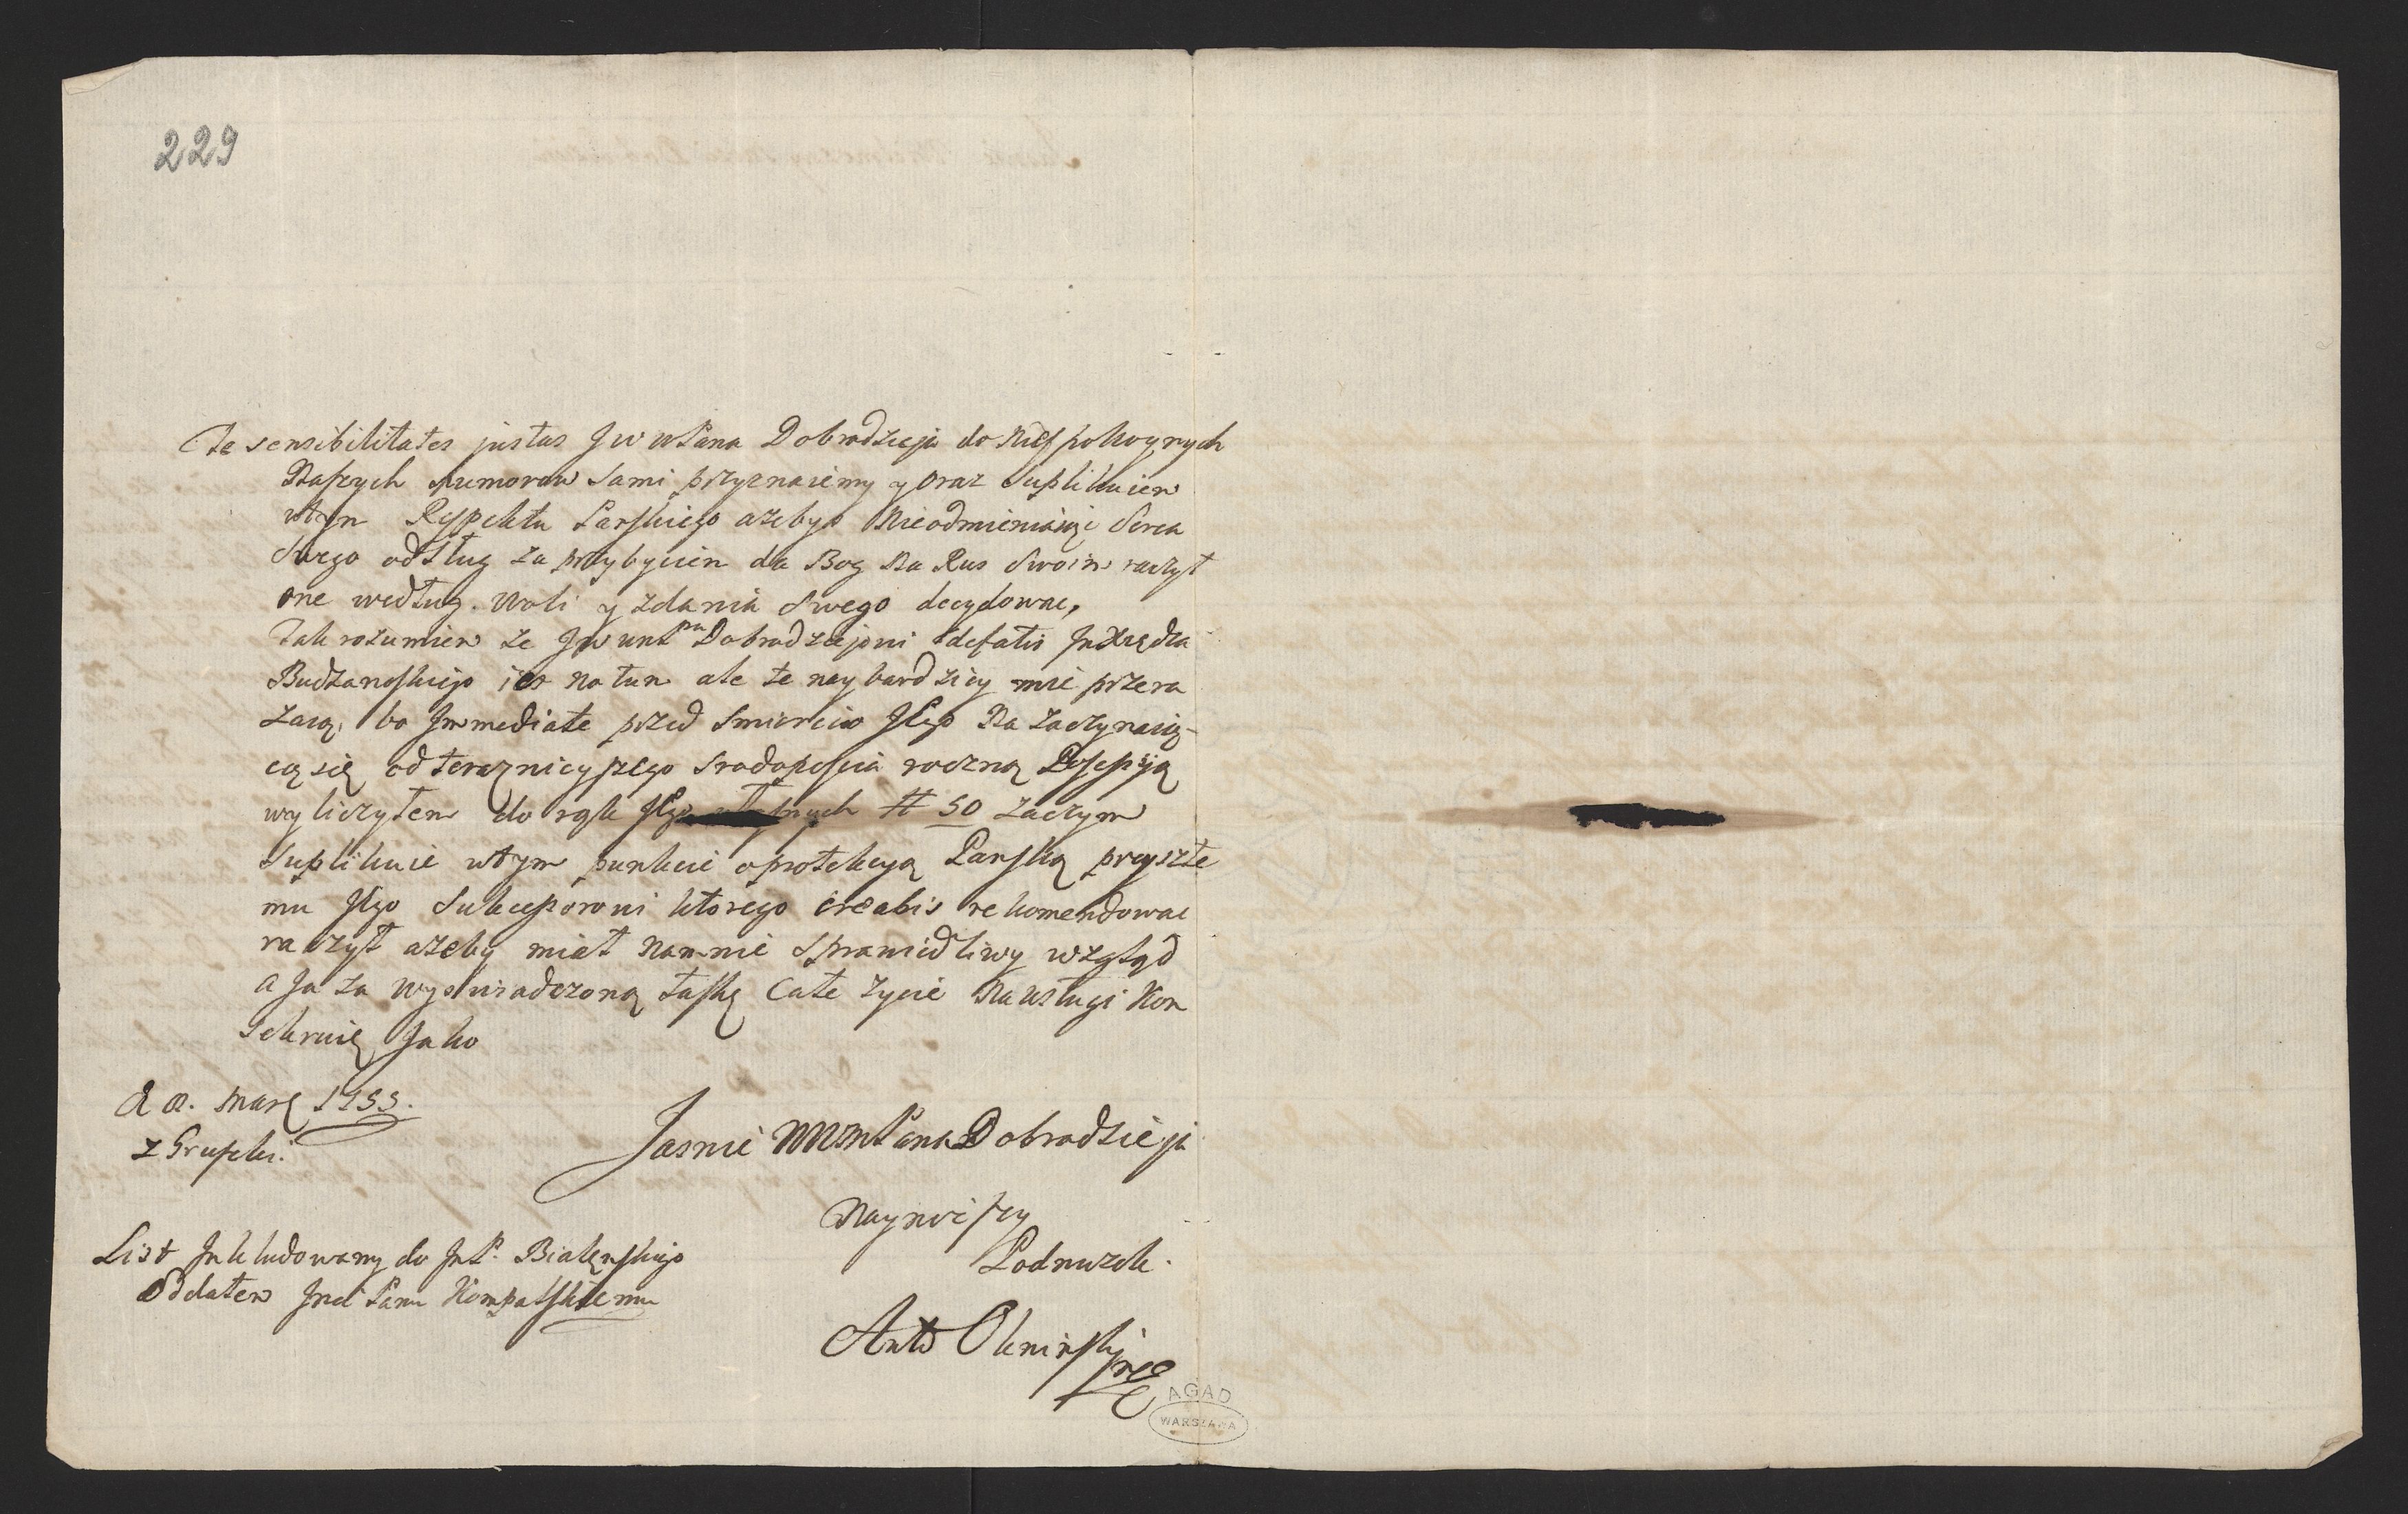 229
Te sensibilitates justas JWWPana Dobrodzieja do Niespokoynych
Naszych Humorow sami przyznaiemy y oraz Supplikuiem
wtym Respektu Pańskiego azebys Nieodmieniaiąc Serca
Swego od Sług za przybyciem da Bog Na Rus Swoim raczył
one według Woli y zdania Swego decydowac,
Tak rozumiem ze JWWP Dobrodzieiowi de fatis Xiędza
Budzanoskiego ies notum ale te naybardziey mie przera
zaią, bo Immediate przed Smiercio Jego Na zaczynaią-
cą się od teraznieyszego Srodoposcia roczną Possesyią
wyliczyłem do rąk Jego # 50 zaczym
Suplikuie wtym punkcie o protekcyą Pańską przyszłe
mu Jego Sukcessorowi ktorego creabis rekomendowac
raczył azeby miał Namnie Sprawiedliwy wzgląd
a Ja za wyswiadczoną łaskę Całe zycie Na usługi Kon
sekruię Jako
d 8. Marę 1755.
z Grupeki.
Jasnie WWMPana Dobrodzieja
Nayniższy
Podnużek.
List Inkludowany do JmP. Białęskiego
Oddałem Jmci Panu Kompalskiemu
Anto Okninski
mp
AGAD
WARSZAWA